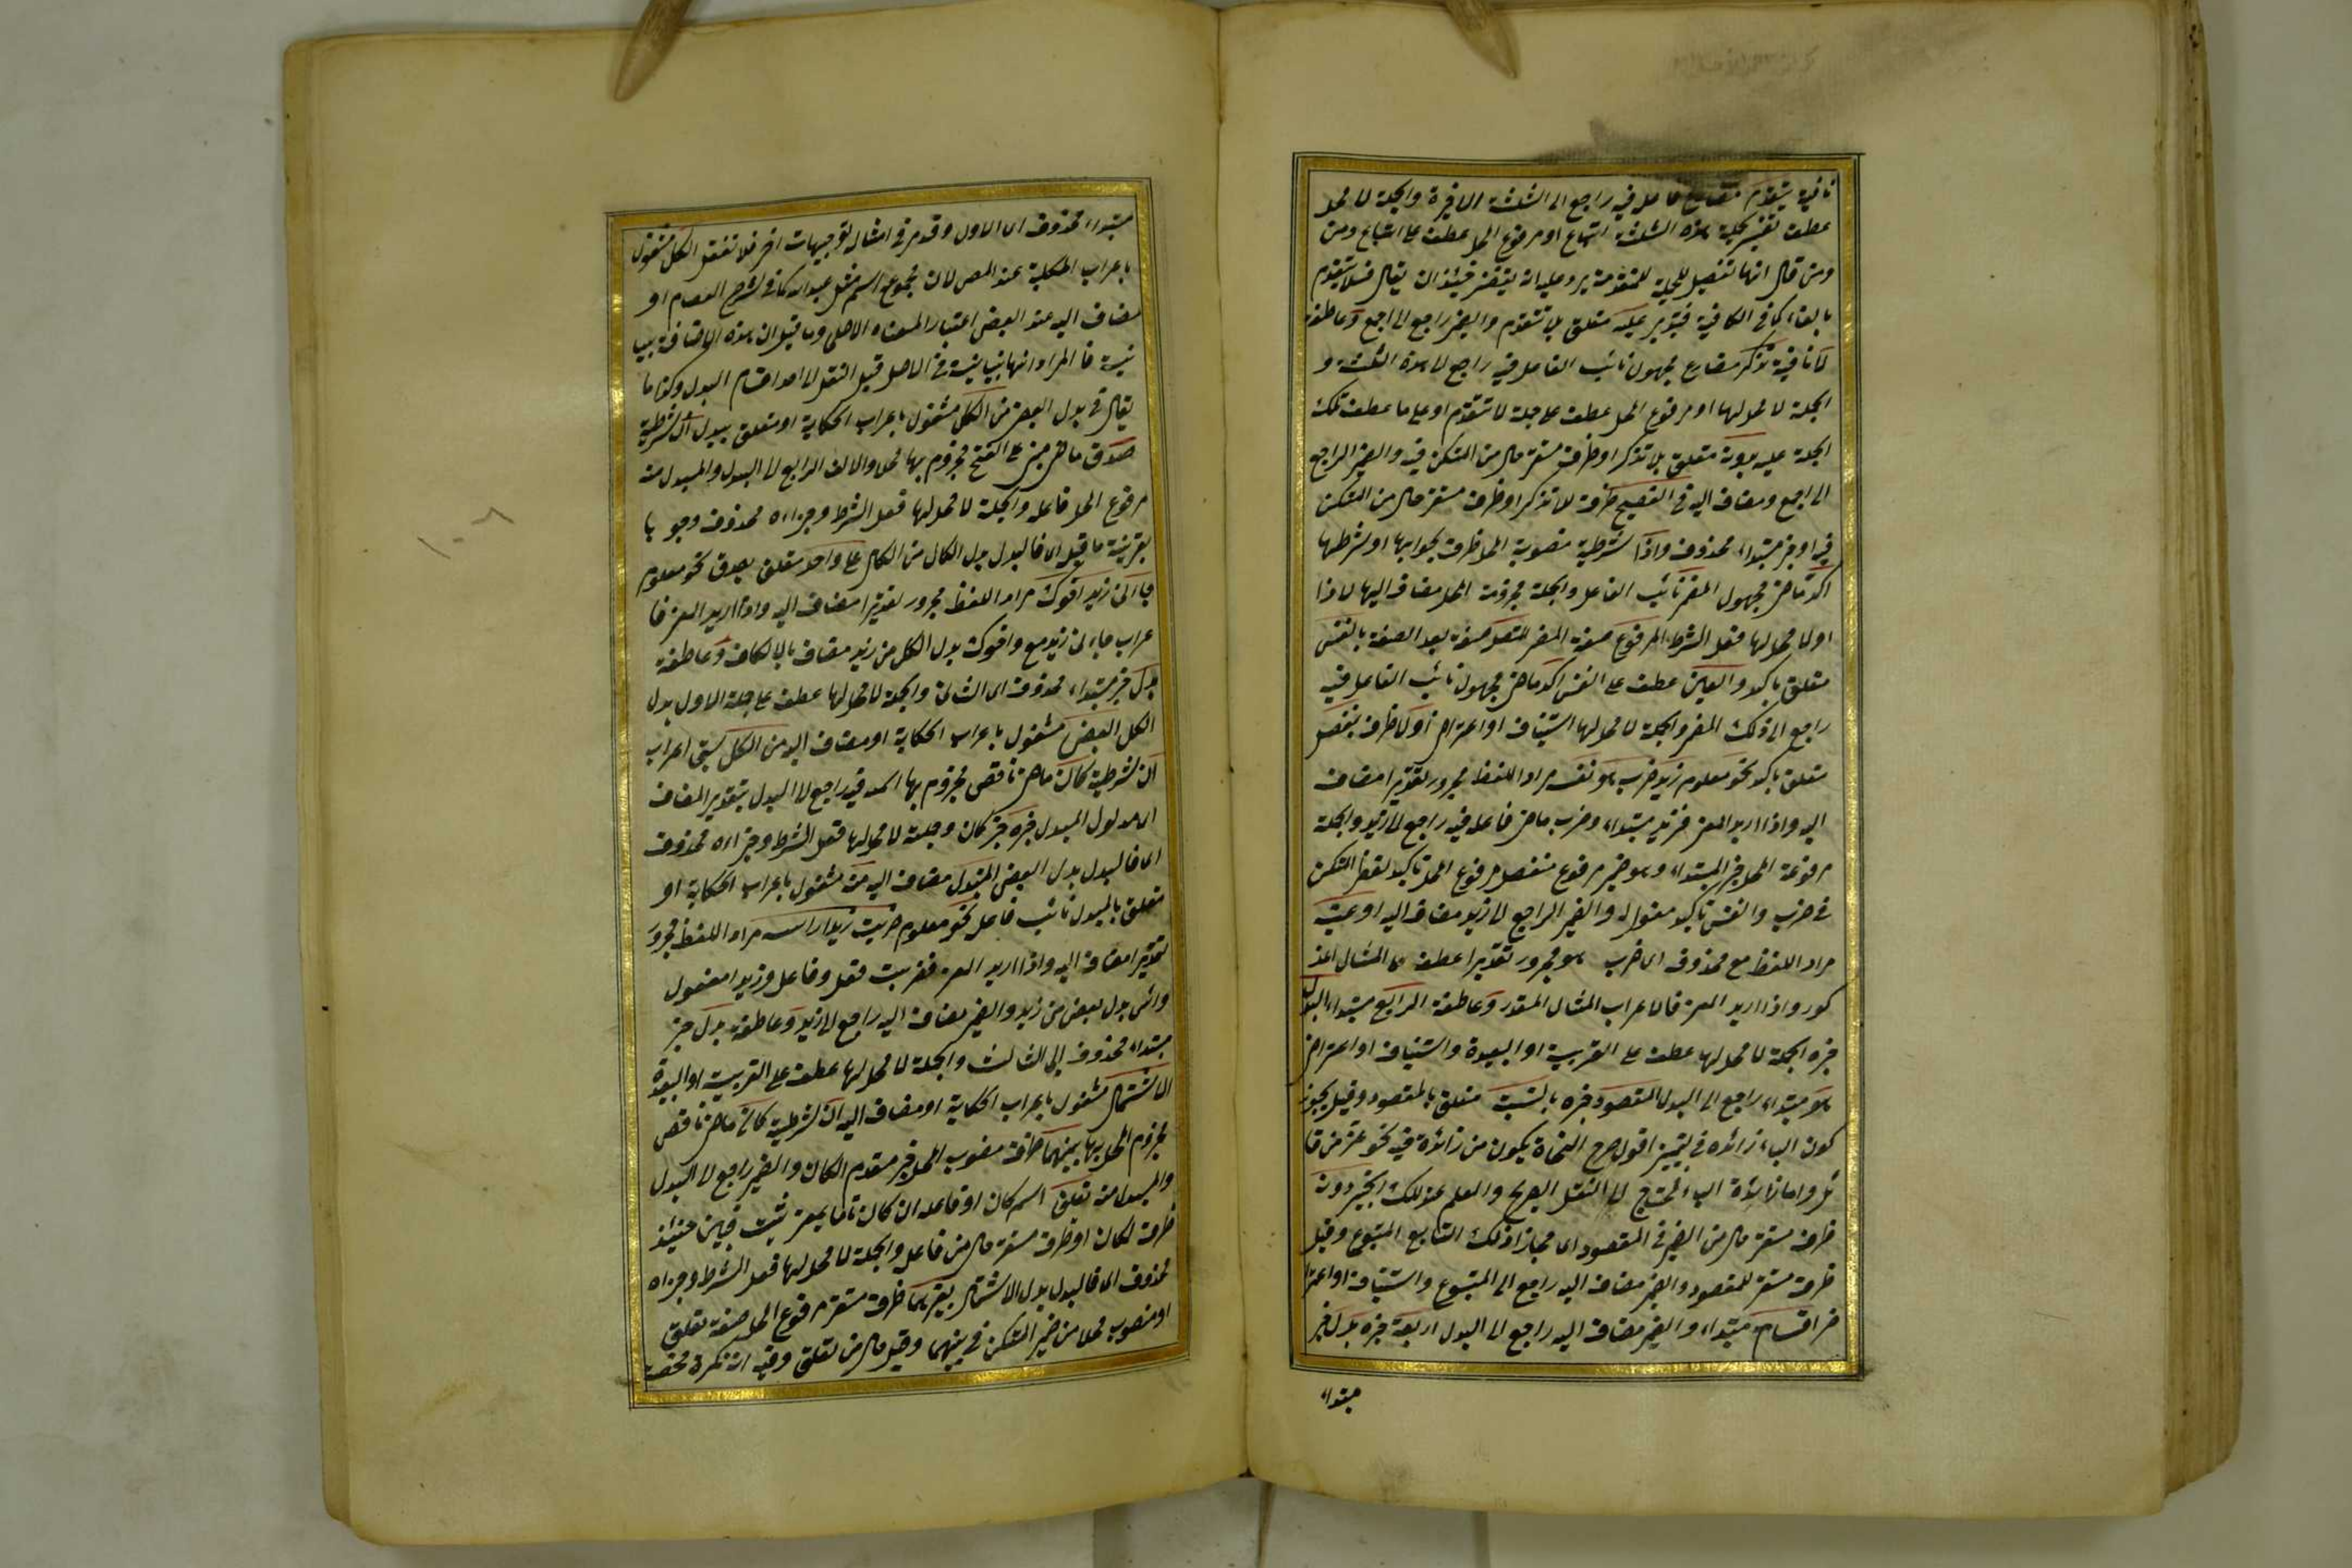 نافية يتقدم مضارع فاعله فيه راجع الى الثلثة الاخيرة والجملة لا محل
عطف تفسير لجملة هذه الثلثة اتباع او مرفوع المحل عطف على اتباع ومن
ومن قال انها تفصيل للجملة المتقدمة يرد عليه ان يقال فلا يتقدم
بالفاء كما في الكافية فتدبر عليه متعلق بلا تتقدم والضمير راجع الى اجمع وعاطفة
لا نافية تذكر مضارع مجهول نائب الفاعل فيه راجع الى هذه الثلثة و
الجملة لا محل لها او مرفوع المحل عطف على جملة لا تتقدم او على ما عطف تلك
الجملة عليه بدونه متعلق بلا تذكر او ظرف مستقر حال من المستكن فيه والضمير الراجع
الى اجمع ومضاف اليه في الفصيح ظرف لا تذكر او ظرف مستقر حال من المستكن
فيه او خبر مبتداء محذوف واذا شرطية منصوبة المحل ظرف بجوابها او شرطها
اكد ماض مجهول المضمر نائب الفاعل والجملة مجرومة المحل مضاف اليها لاذا
اولا محل لها فعل الشرط المرفوع صفة المضمر المتصل صفة بعد الصفة بالنفس
متعلق باكد والعين عطف على النفس اكد ماض مجهول نائب الفاعل فيه
راجع الى ذلك المضمر والجملة لا محل لها استيناف او اعتراض اولا ظرف بمنفصل
متعلق باكد نحو معلوم زيد ضرب هو نفسه مراد اللفظ مجرور تقديرا مضاف
اليه واذا اريد المعنى فزيد مبتداء وضرب ماض فاعله فيه راجع الى زيد والجملة
مرفوعة المحل خبر المبتداء وهو ضمير مرفوع منفصل مرفوع المحل تاكيد لفظي للمستكن
في ضرب والنفس تاكيد معنوي له والضمير الراجع الى زيد مضاف اليه او عينه
مراد اللفظ مع محذوف اى ضرب هو مجرور تقديرا عطف على المثال المذ
كور واذا اريد المعنى فالاعراب المثال المقدر وعاطفة الرابع مبتداء البدل
خبره الجملة لا محل لها عطف على القريبة او البعيدة واستيناف او اعتراض
هو مبتداء راجع الى البدل المقصود خبره بالنسبة متعلق بالمقصود وقيل يجوز
كون الباء زائدة في التمييز اقول صرح النحاة بكون من زائدة فيه نحو عز من قا
ئل واما زائدة الباء لمحتاج الى النقل الصريح والعلم عند الملك الخبير دونه
ظرف مستقر حال من الضمير في المقصود اى مجاوزا ذلك التابع المتبوع وقيل
ظرف مستقر للمقصود والضمير مضاف اليه راجع الى المتبوع واستيناف او اعترا
ض اقسام مبتداء والضمير مضاف اليه راجع الى البدل اربعة خبره بدل خبر
مبتداء
مبتداء محذوف اى الاول وقد مر في امثاله توجيهات اخر فلا تغفل الكل مشغول
باعراب الحكاية عند المص لان مجموع اسم مثل عبد الله كما في شرح العصام او
مضاف اليه عند البعض اعتبار المعناه الاصلي وما قيل ان هذه الاضافة بيا
نية فالمراد انها بيانية في الاصل قبل النقل الى احد اقسام البدل وكذا ما
يقال في بدل البعض من الكل مشغول باعراب الحكاية او متعلق ببدل ان شرطية
صدق ماض مبني على الفتح مجزوم بها محلا والالف الراجع الى البدل والمبدل منه
مرفوع المحل فاعله والجملة لا محل لها فعل الشرط وجزاءه محذوف وجوبا
بقرينة ما قبله اى فالبدل بدل الكل من الكل على واحد متعلق بصدق نحو معلوم
جاءنى زيد اخوك مراد اللفظ مجرور تقديرا مضاف اليه واذا اريد المعنى فا
عراب جاءنى زيد مع واخوك بدل الكل من زيد مضاف بالى الكاف وعاطفة
بدل خبر مبتداء محذوف اى الثانى والجملة لا محل لها عطف على جملة الاول بدل
الكل البعض مشغول باعراب الحكاية او مضاف اليه من الكل سبق اعرابه
ان شرطية كان ماض ناقص مجزوم بها اسمه فيه راجع الى البدل بتقدير المضاف
اى مدلول المبدل جزءه خبر كان وجملة لا محل لها فعل الشرط وجزاءه محذوف
اى فالبدل بدل البعض المبدل مضاف اليه منه مشغول باعراب الحكاية او
متعلق بالمبدل نائب فاعل نحو معلوم ضربت زيدا راسه مراد اللفظ مجرور
تقديرا مضاف اليه واذا اريد المعنى فضربت فعل وفاعل وزيدا مفعول
وراس بدل بعض من زيد والضمير مضاف اليه راجع الى زيد وعاطفة بدل خبر
مبتداء محذوف اى الثالث والجملة لا محل لها عطف على القريبة او البعيدة
الاشتمال مشغول باعراب الحكاية او مضاف اليه ان شرطية كان ماض ناقص
مجزوم المحل بها بينهما ظرف منصوب المحل خبر مقدم لكان والضمير راجع الى البدل
والمبدل منه تعلق اسم كان او فاعله ان كان تاما بمعنى ثبت فبين حينئذ
ظرف لكان او ظرف مستقر حال من فاعله والجملة لا محل لها فعل الشرط وجزاءه
محذوف اى فالبدل بدل الاشتمال بغيرهما ظرف مستقر مرفوع المحل صفة تعلق
او منصوب محلا من ضمير المستكن في بينهما وقيل حال من تعلق وفيه انه نكرة محضة
١٠٦